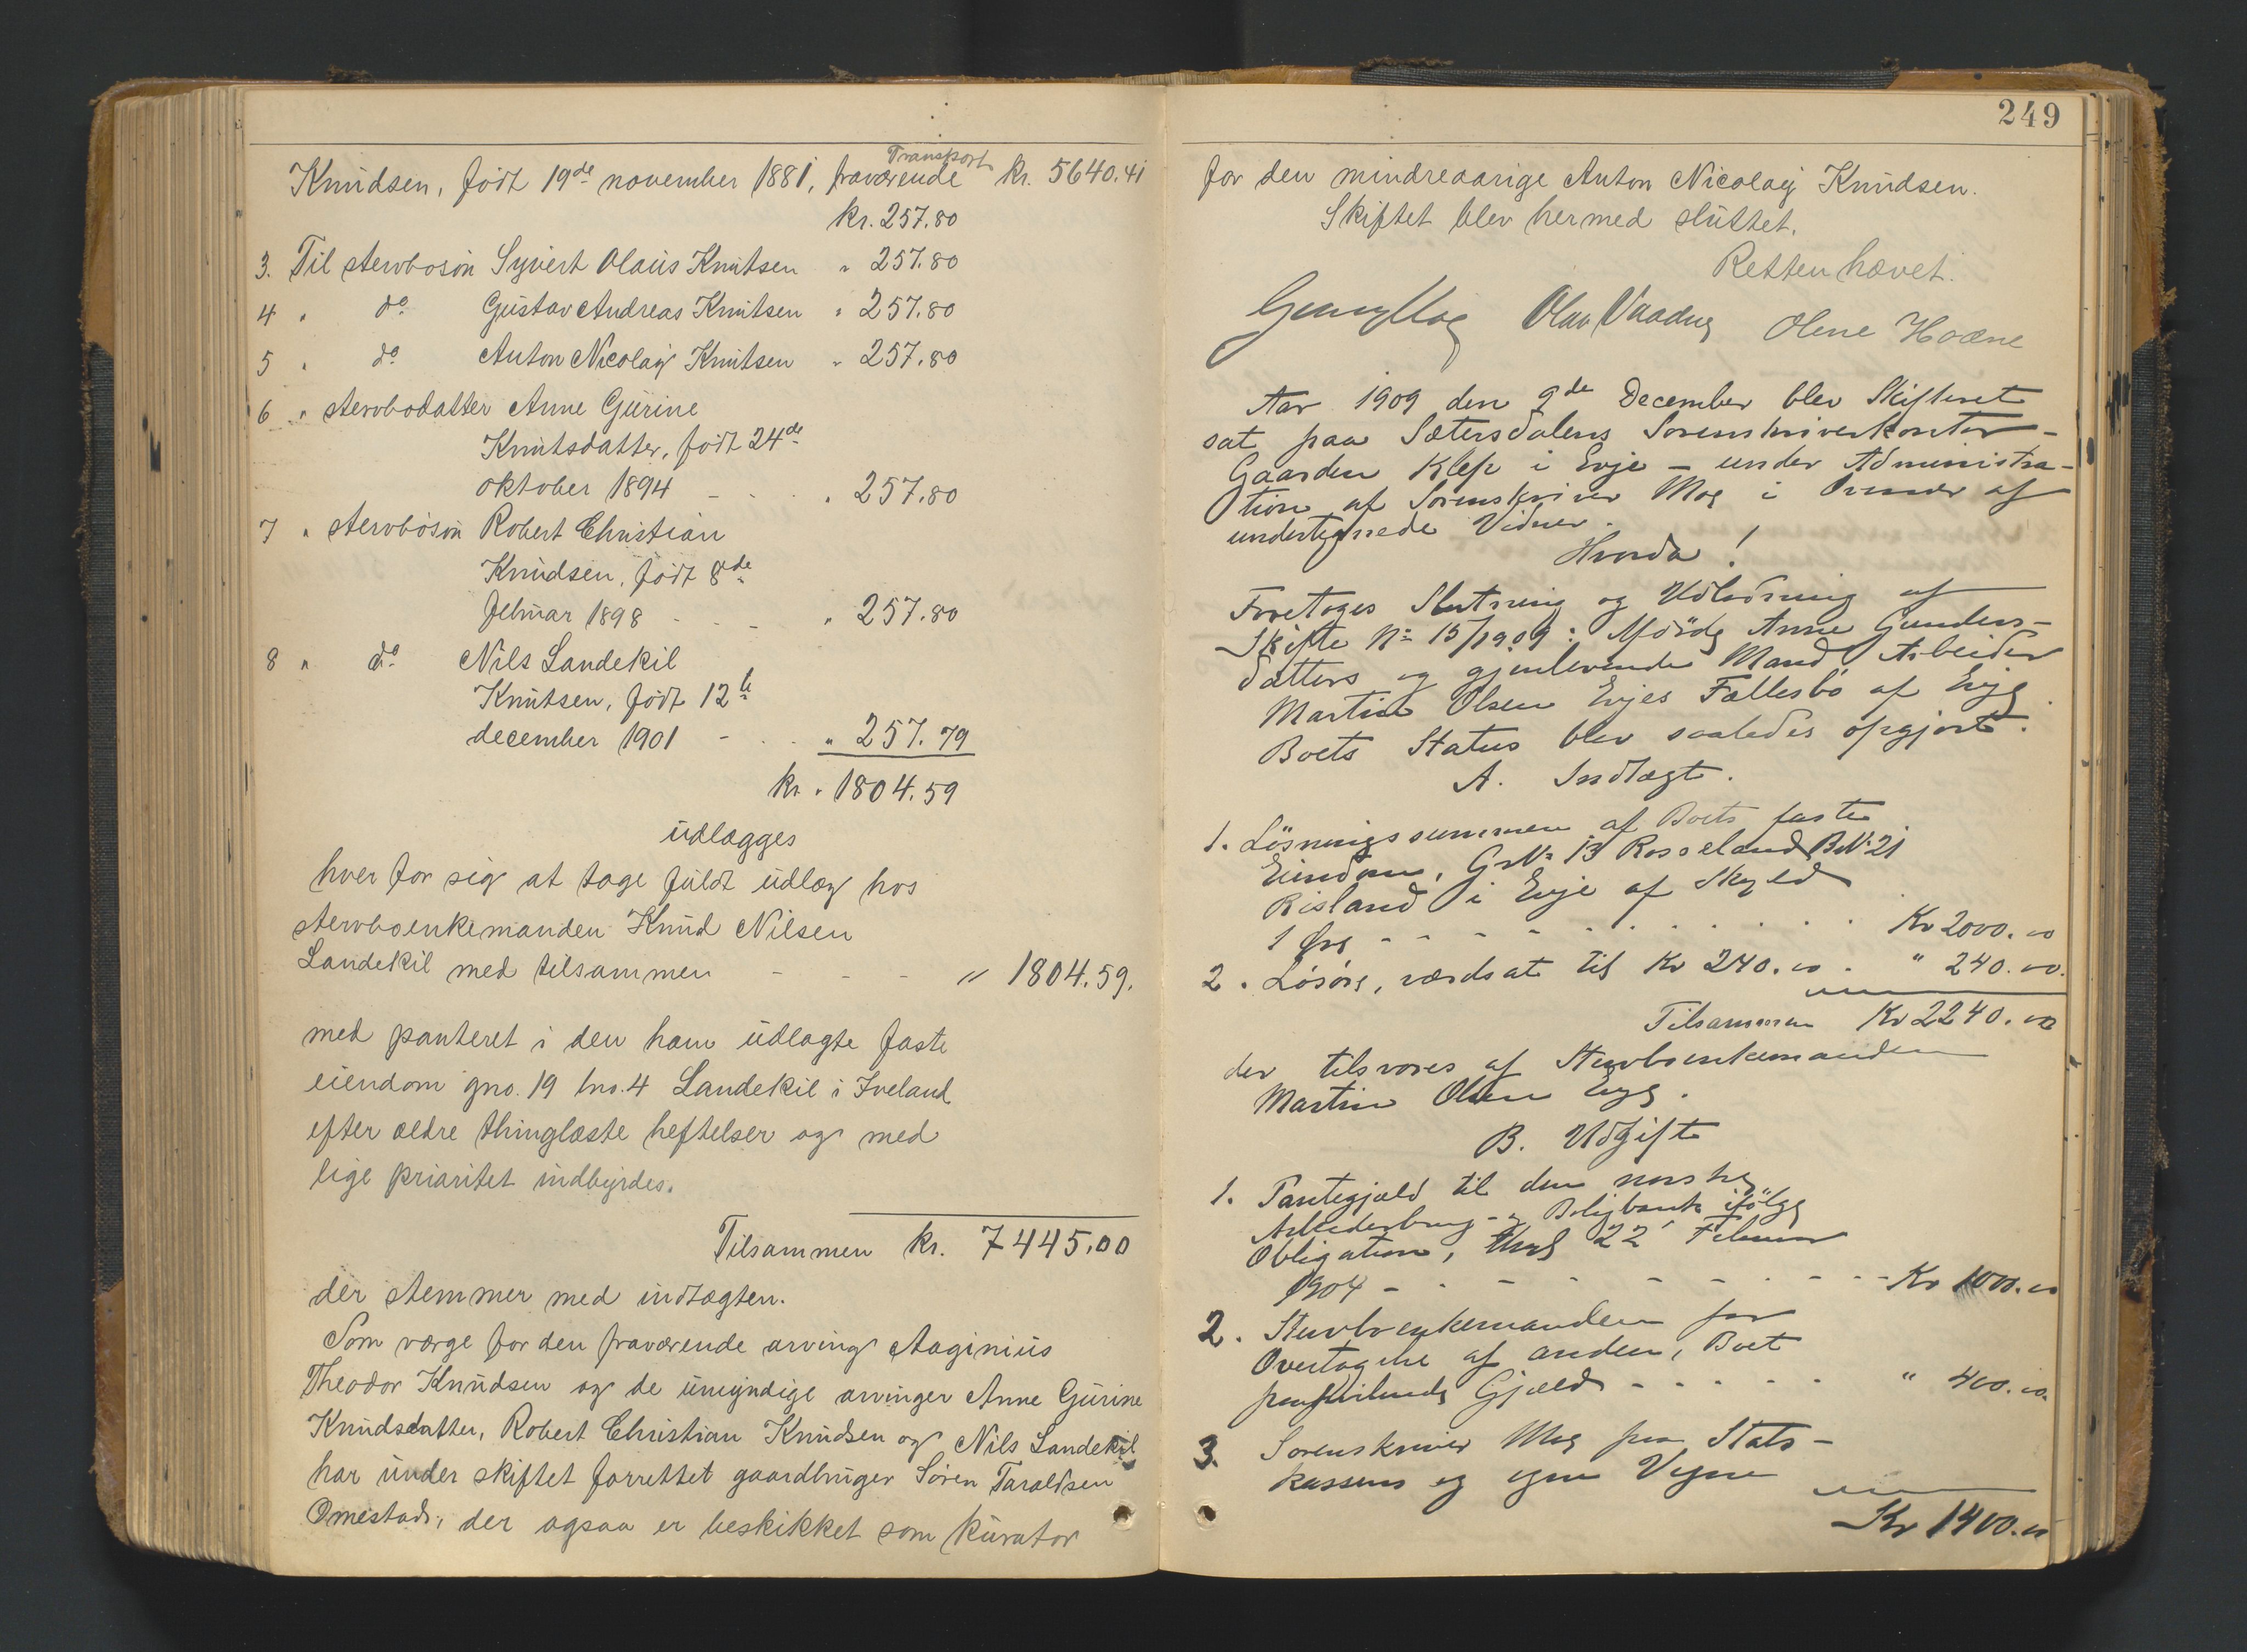 Transport
Knudsen, født 19de november 1881, fraværende kr. 5640.41
kr. 257.80
3. Til stervbosøn Syvert Olaus Knutsen " 257.80
4 " do Gustav Andreas Knutsen " 257.80
5 " do Anton Nicolay Knutsen " 257.80
6 " stervbodatter Anne Gurine
Knutsdatter, født 24de
oktober 1894 - . . " 257.80
7 " stervbosøn Robert Christian
Knudsen, født 8de
februar 1898 - - - " 257.80
8 " do Nils Landekil
Knutsen, født 12te
december 1901 - . . " 257.79
kr. " 1804.59
udlægges
hver for sig at tage fuldt udlæg hos
stervboenkemanden Knud Nilsen
Landekil med tilsammen - - - " 1804.59.
med panteret i den ham udlagte faste
eiendom gno. 19 bno. 4 Landekil i Iveland
efter ældre thinglæste heftelser og med
lige prioritet indbyrdes.
Tilsammen kr. 7445.00
der stemmer med indtægten.
Som værge for den fraværende arving Aaginius
Theodor Knudsen og de umyndige arvinger Anne Gurine
Knudsdatter, Robert Christian Knudsen og Nils Landekil
har under skiftet forrettet gaardbruger Søren Taraldsen
Omestad, der ogsaa er beskikket som kurator
249
for den mindreaarige Anton Nicolay Knudsen.
Skiftet blev hermed sluttet.
Retten hævet.
Olav Olene
Aar 1909 den 9de December blev Skifteret
sat paa Sætersdalens Sorenskriverkontor -
Gaarden Klep i Evje - under Administra-
tion af Sorenskriver Moe i Overvær af
undertegnede Vidner.
Hvorda!
Foretoges Slutning og Udlodning af
Skifte No 15/1909: Afdøde Anne Gunders-
datters og gjenlevende Mand Arbeider
Martin Olsen Evjes Fællesbo af Evje.
Boets Status blev saaledes opgjort.
A. Indtægt.
1. Løsningssummen af Boets faste
Eiendom, G.No 13 Rosseland B.No 21
Risland i Evje af Skyld
1 Øre - - - - - . . . . . Kr 2000.00
2. Løsøre, værdsat til Kr 240.00 . " 240.00.
Tilsammen Kr 2240.00
der tilsvares af Stervboenkemanden
Martin Olsen Evje.
B. Udgift
1. Pantegjæld til den norske
Arbeiderbrug- og Boligbank ifølge
Obligation, thgl 22 Februar
1904 - - - - - - - - - Kr 1000.00
2. Stervboenkemanden for
Overtagelse af anden, Boet
paahvilende Gjæld - - - - - " 400.00.
3. Sorenskriver Moe paa Stats-
kassens og egne Vegne
Kr 1400.00